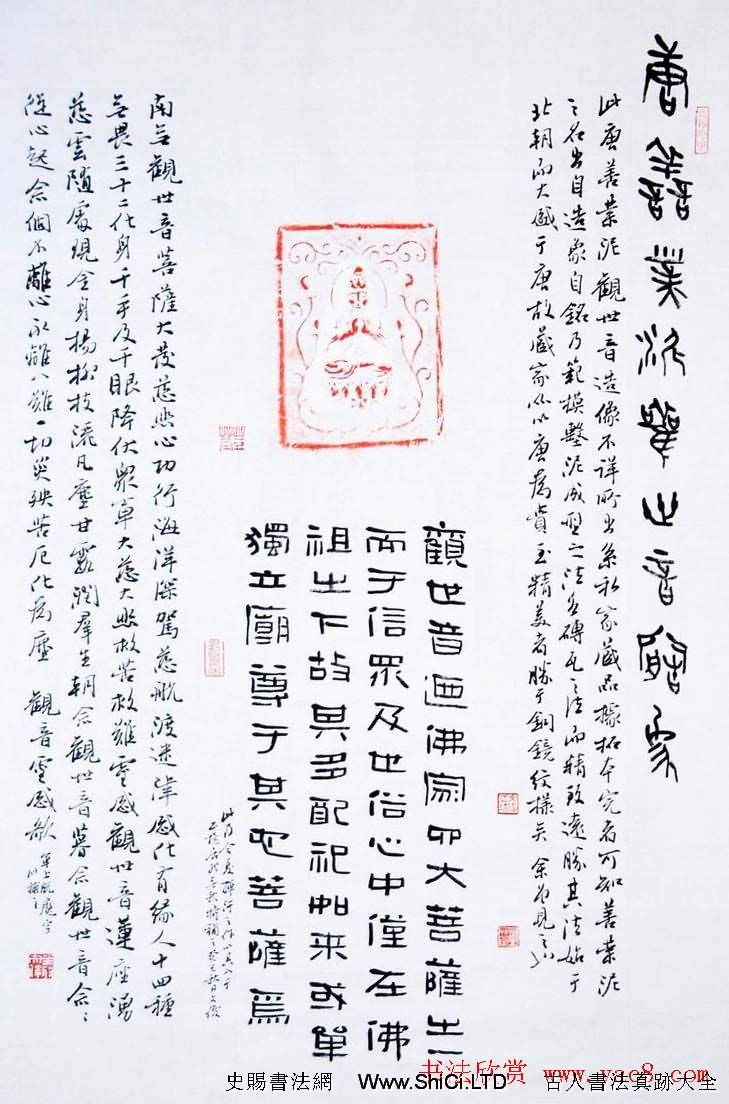 唐善業泥觀世音造像
此唐善業泥觀世音造像不詳所出系私家藏品據拓本究者可知善業泥
之名出自造象自銘乃範模墼泥成型之法與磚瓦之法而精致遠勝其法始于
北朝而大盛于唐故藏家必以唐為貴至精美者勝于銅鏡紋樣矣余曾見
觀世音迺佛家四大菩薩之一
而于信眾及世俗心中僅在佛
祖之下故其多配祀如来或單
獨立廟尊于其它菩薩焉
南無觀世音菩薩大發慈悲心功行海洋深駕慈航渡迷津感化有緣人十四種
無畏三十二化身千手及千眼降伏眾軍大慈大悲救苦救難靈感觀世音蓮座湧
慈雲隨處現全身楊柳枝灑凡塵甘露潤羣生朝念觀世音暮念觀世音念念
從心起念個不離心永離八難一切災殃苦厄化為塵 觀音靈感歌
书法欣赏 www.yac8.com
史賜書法網 Www.ShiCi.LTD 古人書法真跡大全